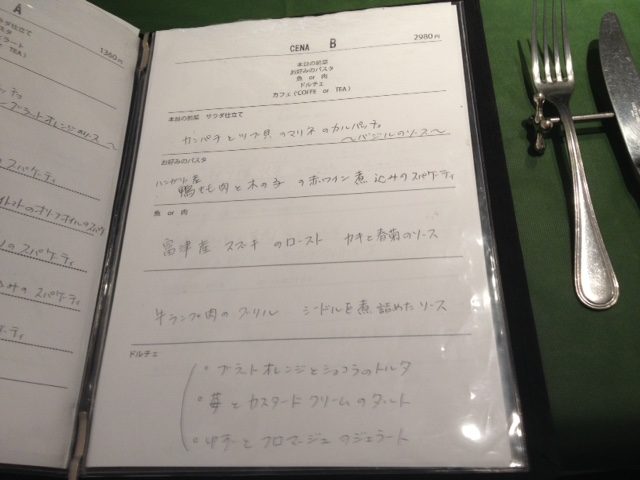 A
1360円
サラダ仕立て
パスタ
ジェラート
TEA)
ブラットオレンジのソース ～
スパゲーティ
のスパゲーティ
スパゲーティ
CENA B 2980円
本日の前菜
お好みのパスタ
魚 or 肉
ドルチェ
カフェ(COFFE or TEA)
本日の前菜 サラダ仕立て
カンパチとツブ貝のマリネのカルパッチョ
～バジルのソース～
お好みのパスタ
ハンガリー産
鴨もも肉と木の子の赤ワイン煮込みのスパゲーティ
魚 or 肉
富津産 スズキのロースト カキと春菊のソース
牛ランプ肉のグリル シードルを煮詰めたソース
ドルチェ
・ブラットオレンジとショコラのトルタ
・苺とカスタードクリームのタルト
・ゆずとフロマージュのジェラート